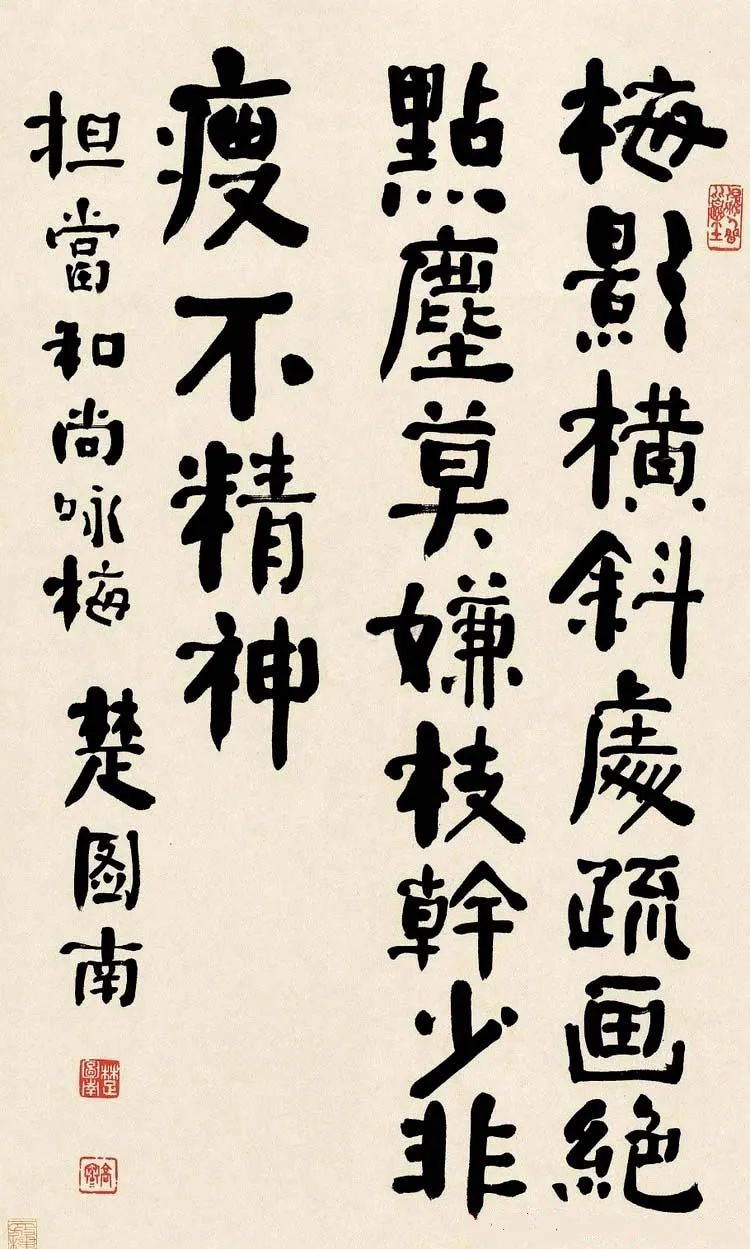 梅影横斜處疏画絕
點塵莫嫌枝幹少非
瘦不精神
担當和尚咏梅 楚图南
楚圖南